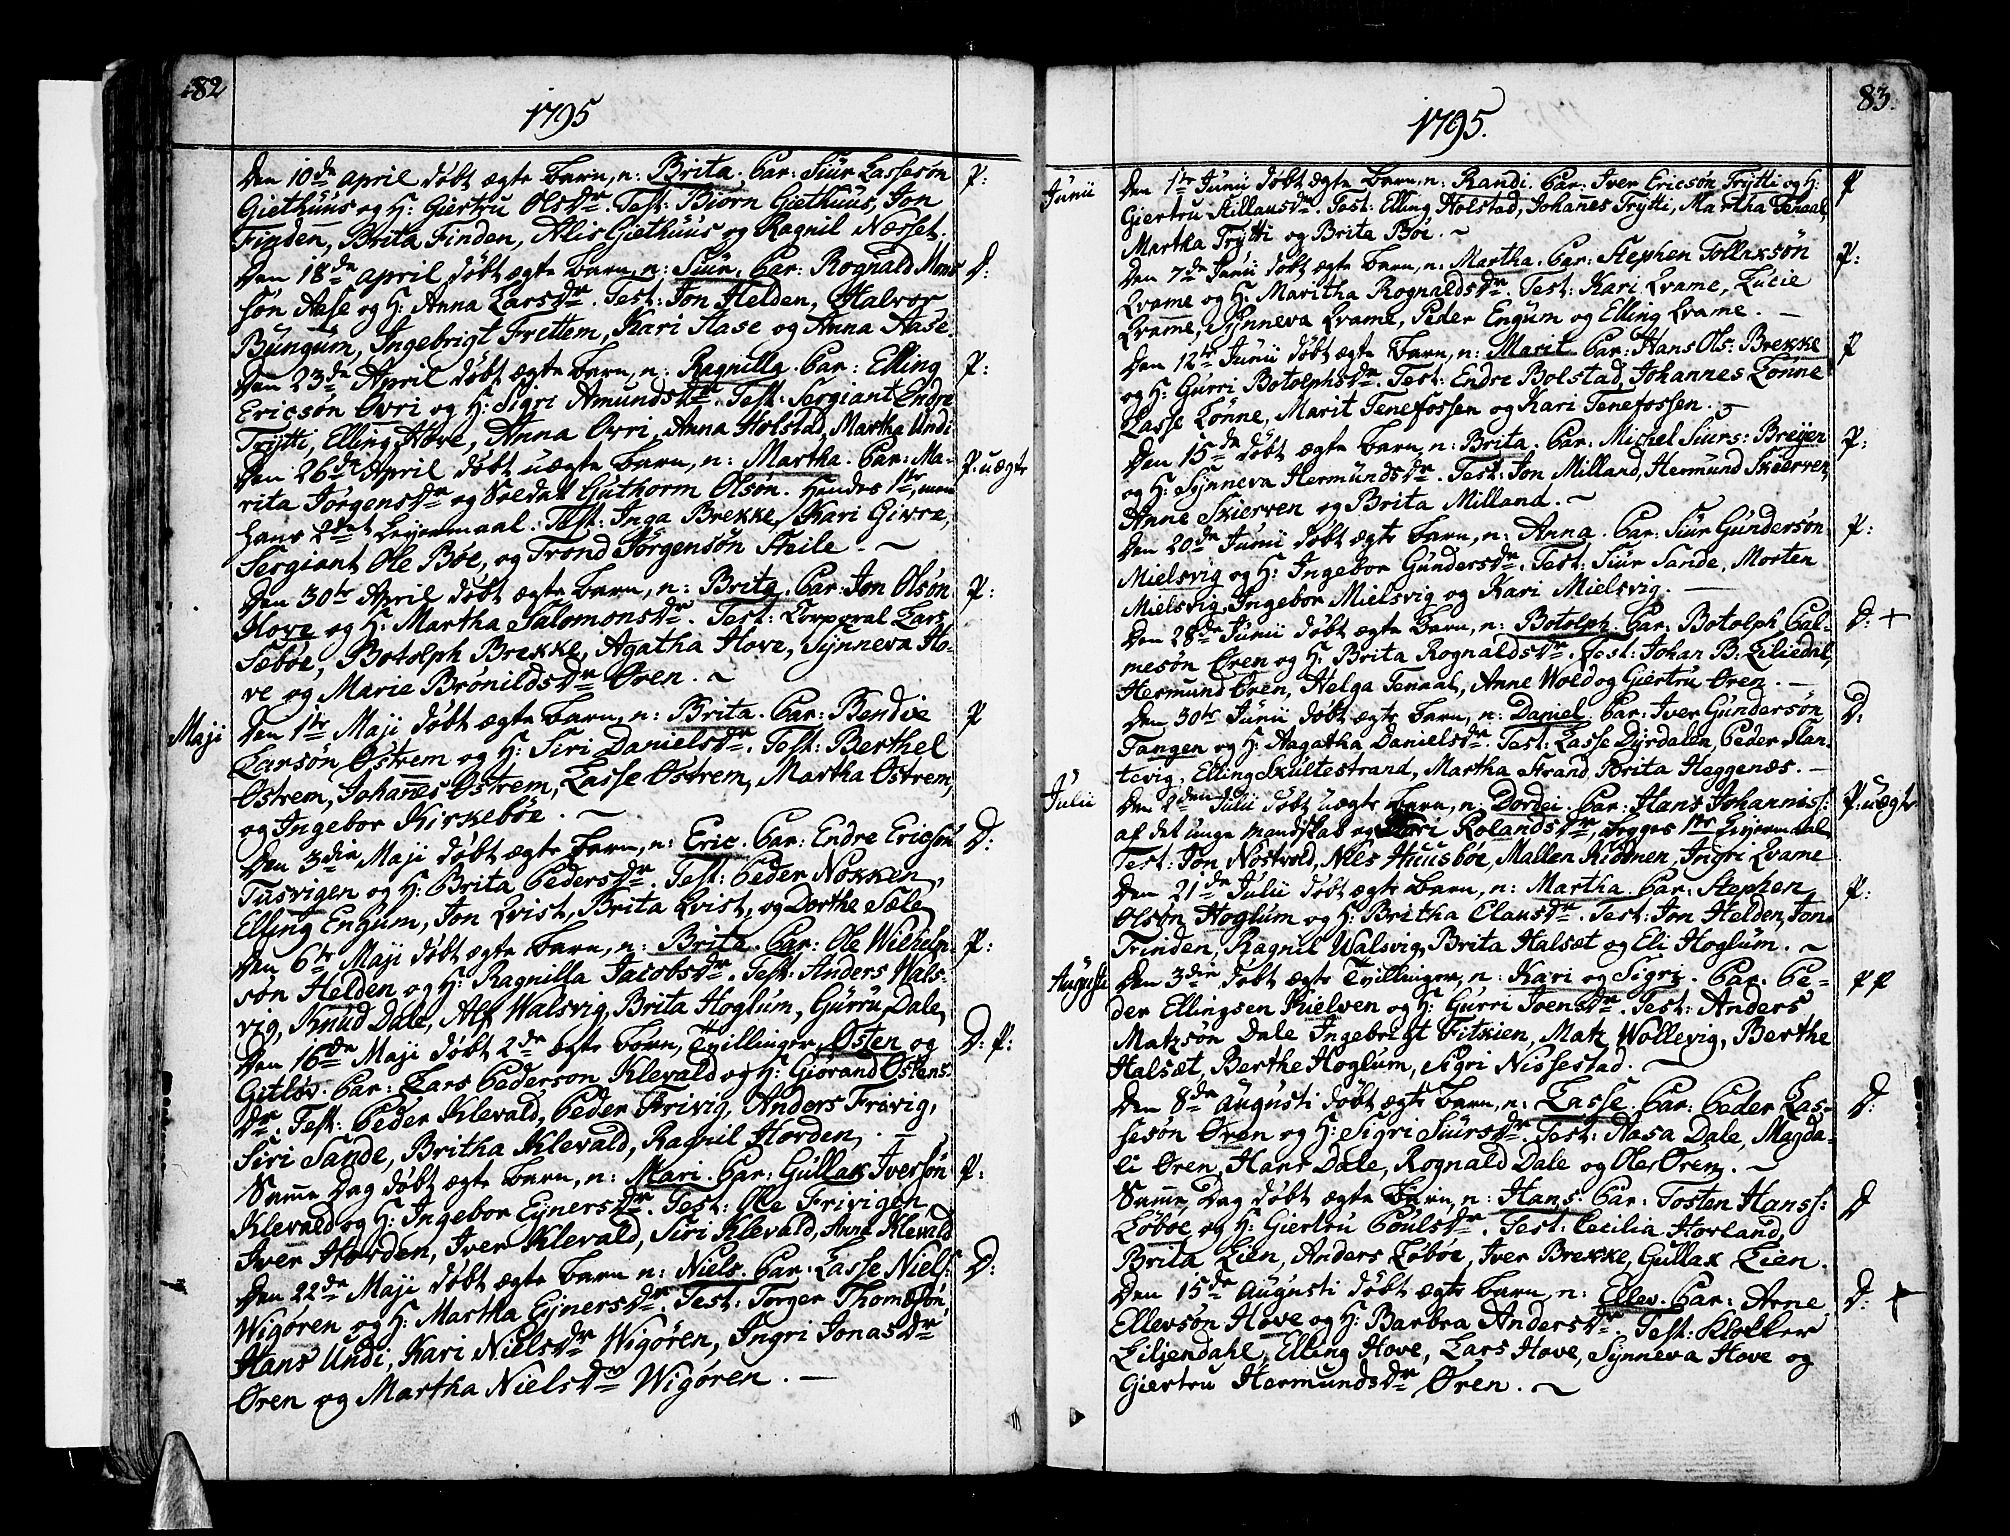 82
1795
Den 10de April døbt ægte Barn, n: Brita. Par: Siur Lassesøn P:
Giethuus og H: Giertru OlsDr. Test: Biørn Giethuus, Jon
Finden, Brita Finden, Alis Giethuus og Ragnil Næsset.
Den 18de April døbt ægte Barn, n: Siur. Par: Rognald Mons D:
søn Aase og H: Anna LarsDr. Test: Jon Helden, Halvor
Bungum, Ingebrigt Frettem, Kari Aase og Anna Aase.
Den 23de April døbt ægte Barn, n: Ragnilla. Par: Elling P:
Ericsøn Ovri og H: Sigri AmundsDr. Test: Sergiant Endre
Trytti, Elling Hove, Anna Ovri, Anna Holstad, Martha Undi
Den 26de April døbt uægte Barn, n: Martha. Par: Ma- P: uægte
rita JørgensDr og Soldat Guthorm Olsøn. Hendes 1te, men
hans 2det Leyermaal. Test: Inga Brekke, Kari Givre,
Sergiant Ole Bøe, og Trond Jørgensøn Steile.
Den 30te April døbt ægte Barn, n: Brita. Par: Jon Olsøn P:
Hove og H: Martha SalomonsDr. Test: Corporal Lars
Sæbøe, Botolph Brekke, Agatha Hove, Synneva Ho-
ve og Marie BrønildsDr Øren.
Maji Den 1te Maji døbt ægte Barn, n: Brita. Par: Bendix P
Larsøn Østrem og H: Siri DanielsDr. Test: Berthel
Østrem, Johannes Østrem, Lasse Østrem, Martha Østrem,
og Ingebor Kirkebøe.
Den 3die Maji døbt ægte Barn, n: Eric. Par: Endre Ericsøn D:
Tusvigen og H: Brita PedersDr. Test: Peder Nøkken,
Elling Engum, Jon Qvist, Brita Qvist, og Dorthe Sæle
Den 6te Maji døbt ægte Barn, n: Brita. Par: Ole Wilhelm- P:
søn Helden og H: Ragnilla JacobsDr. Test: Anders Wals-
vig, Knud Dale, Alf Walsvig, Brita Hoglum, Gurru Dale,
Den 16de Maji døbt 2de ægte Børn, Tvillinger, Østen og D: P:
Gitløv. Par: Lars Pedersøn Klevald og H: Giørand Østens-
Dr. Test: Peder Klevald, Peder Frivig, Anders Frivig,
Siri Sande, Britha Klevald, Ragnil Horden.
Samme Dag døbt ægte Barn, n: Mari. Par: Gullak Iversøn P:
Klevald og H: Ingebor EjnersDr. Test: Ole Frivigen,
Iver Horden, Iver Klevald, Siri Klevald, Anne Klevald
Den 22de Maji døbt ægte Barn n: Niels. Par: Lasse Niels: D:
Wigøren og H: Martha EjnersDr. Test: Torger Thomæsøn,
Hans Undi, Kari NielsDr Wigøren, Ingri JonasDr
Øren og Martha NielsDr Wigøren.
83.
1795.
Junii Den 1te Junii døbt ægte Barn, n: Randi. Par: Iver Ericsøn Trytti og H: P
Giertru StillausDr. Test: Elling Holstad, Johannes Trytti, Martha Tenaal,
Martha Trytti og Brita Bøe.
Den 7de Junii døbt ægte Barn, n: Martha. Par: Stephen Tollaksøn P:
Qvame og H: Maritha RognaldsDr. Test: Kari Qvame, Lucie
Qvame, Synneva Qvame, Peder Engum og Elling Qvame.
Den 12te Junii døbt ægte Barn, n: Marit. Par: Hans Ols: Brekke P
og H: Gurri BotolphsDr. Test: Endre Bolstad, Johannes Lønne
Lasse Lønne, Marit Tenefossen og Kari Tenefossen.
Den 15de døbt ægte Barn, n: Brita. Par: Michel Siurs: Breyen P:
og H: Synneva HermundsDr. Test: Jon Milland, Hermund Skierven,
Anne Skierven og Brita Milland.
Den 20de Junii døbt ægte Barn, n: Anna. Par: Siur Gundersøn P:
Mielsvig og H: Ingebor GundersDr. Test: Siur Sande, Morten
Mielsvig, Ingebor Mielsvig og Kari Mielsvig.
Den 28de Junii døbt ægte Barn, n: Botolph. Par: Botolph Pal- D: +
mesøn Øren og H: Brita RognaldsDr. Test: Johan B: Liliedal,
Hermund Øren, Helga Tenaal, Anne Wold og Giertru Øren.
Den 30te Junii døbt ægte Barn, n: Daniel. Par: Iver Gundersøn D:
Tangen og H: Aagatha DanielsDr. Test: Lasse Dyrdalen, Peder Slan-
tevig, Elling Skultestrand, Martha Strand, Brita Haggenæs.
Julii Den 2den Julii døbt uægte Barn, n: Dordei. Par: Hans Johannis: P: uægte
af det unge Mandskab og Kari RolandsDr, begges 1te Leyermaal
Test: Jon Nøstvold, Niels Huusbøe, Mallen Ridmen, Ingri Qvame
Den 21de Julii døbt ægte Barn, n: Martha. Par: Stephen P:
Olsøn Hoglum og H: Britha ClausDr. Test: Jon Helden, Jon
Trinden, Ragnil Walsvig, Brita Halsæt og Eli Hoglum.
Augusti Den 3die døbt ægte Tvillinger, n: Kari og Sigri. Par: Pe- P P
der Ellingsen Skielven og H: Gurri IvensDr. Test: Anders
Matzsøn Dale, Ingebrigt Fitkien, Matz Wollevig, Berthe
Halsæt, Berthe Hoglum, Sigri Nissestad.
Den 8de Augusti døbt ægte Barn, n: Lasse. Par: Peder Las- D:
sesøn Øren og H: Sigri SiursDr. Test: Aasa Dale, Magda-
li Øren, Hans Dale, Rognald Dale og Ole Øren.
Samme Dag døbt ægte Barn, n: Hans. Par: Tosten Hanss: D
Løbøe og H: Giertru PoulsDr. Test: Cecilia Horland,
Brita Lien, Anders Løbøe, Iver Brekke, Gullak Lien.
Den 15de Augusti døbt ægte Barn, n: Ellev. Par: Arne D: +
Ellevsøn Hove og H: Barbra AndersDr. Test: Klokker
Liljendahl, Elling Hove, Lars Hove, Synneva Hove og
Giertru HermundsDr Øren.